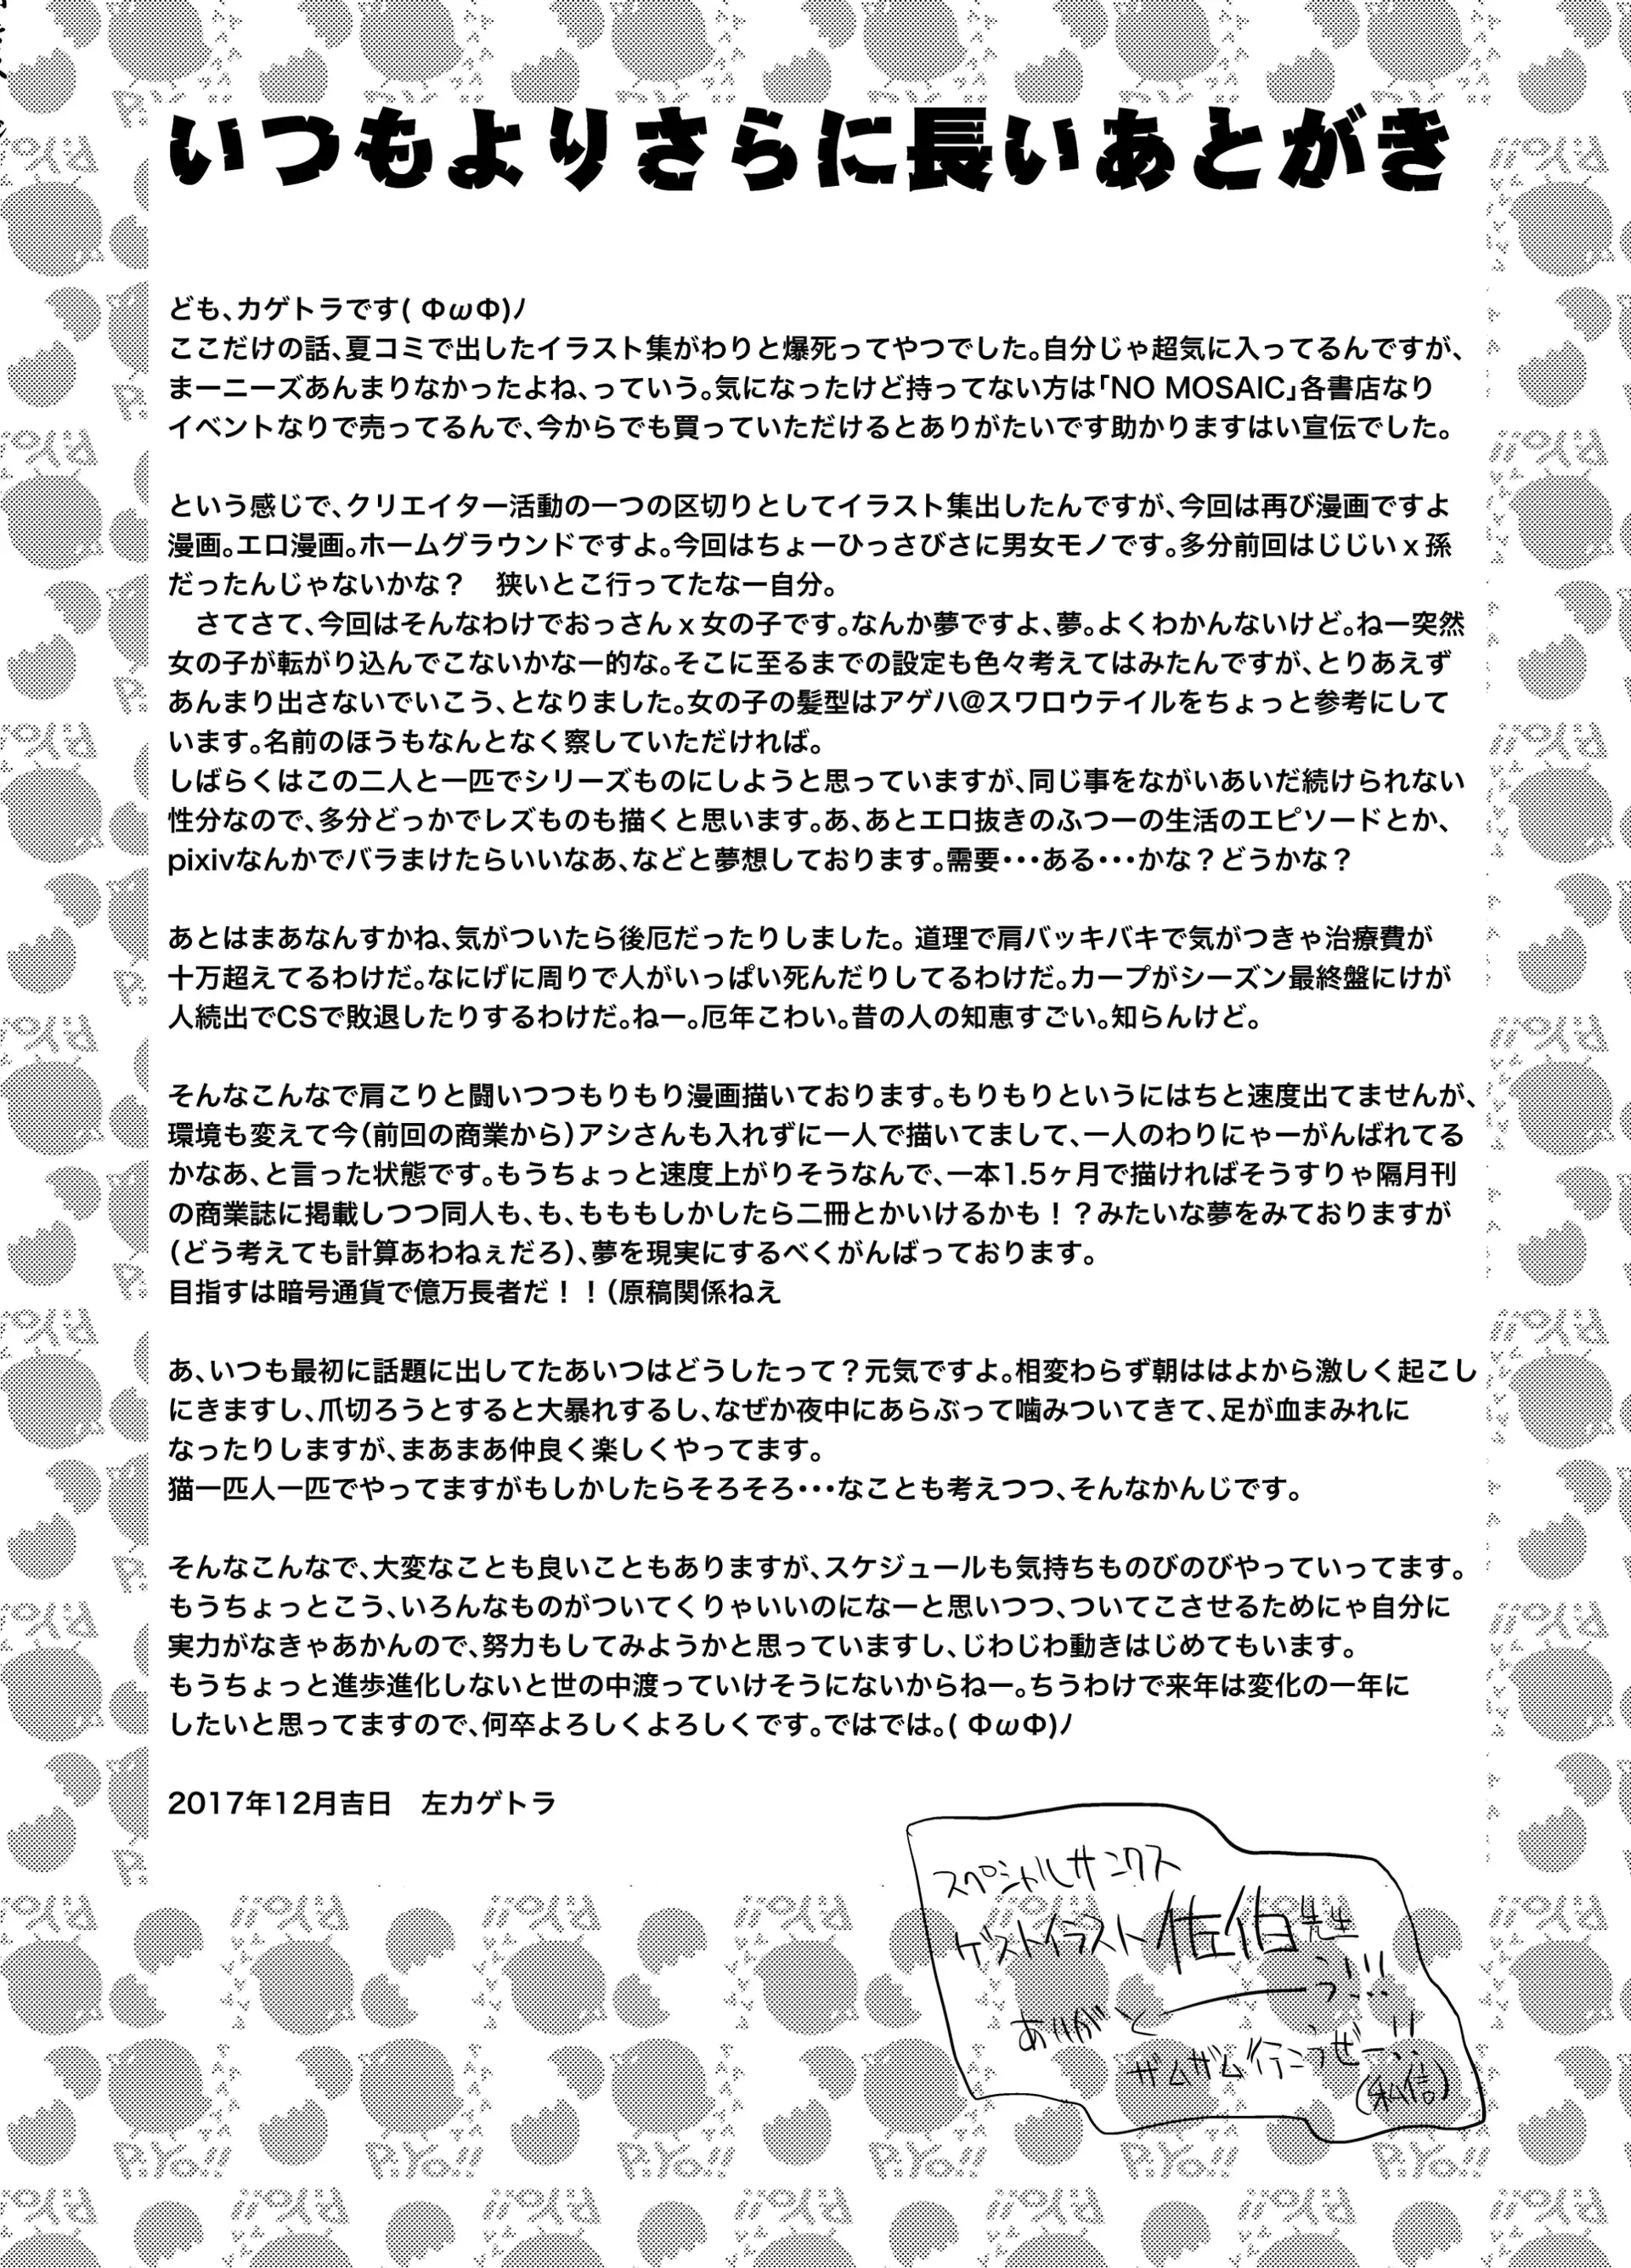 いつもよりさらに長いあとがき
ども、カゲトラです( ΦωΦ)ﾉ
ここだけの話、夏コミで出したイラスト集がわりと爆死ってやつでした。自分じゃ超気に入ってるんですが、
まーニーズあんまりなかったよね、っていう。気になったけど持ってない方は「NO MOSAIC」各書店なり
イベントなりで売ってるんで、今からでも買っていただけるとありがたいです助かりますはい宣伝でした。
という感じで、クリエイター活動の一つの区切りとしてイラスト集出したんですが、今回は再び漫画ですよ
漫画。エロ漫画。ホームグラウンドですよ。今回はちょーひっさびさに男女モノです。多分前回はじじいｘ孫
だったんじゃないかな？　狭いとこ行ってたなー自分。
　さてさて、今回はそんなわけでおっさんｘ女の子です。なんか夢ですよ、夢。よくわかんないけど。ねー突然
女の子が転がり込んでこないかなー的な。そこに至るまでの設定も色々考えてはみたんですが、とりあえず
あんまり出さないでいこう、となりました。女の子の髪型はアゲハ@スワロウテイルをちょっと参考にして
います。名前のほうもなんとなく察していただければ。
しばらくはこの二人と一匹でシリーズものにしようと思っていますが、同じ事をながいあいだ続けられない
性分なので、多分どっかでレズものも描くと思います。あ、あとエロ抜きのふつーの生活のエピソードとか、
pixivなんかでバラまけたらいいなあ、などと夢想しております。需要・・・ある・・・かな？どうかな？
あとはまあなんすかね、気がついたら後厄だったりしました。 道理で肩バッキバキで気がつきゃ治療費が
十万超えてるわけだ。なにげに周りで人がいっぱい死んだりしてるわけだ。カープがシーズン最終盤にけが
人続出でCSで敗退したりするわけだ。ねー。厄年こわい。昔の人の知恵すごい。知らんけど。
そんなこんなで肩こりと闘いつつもりもり漫画描いております。もりもりというにはちと速度出てませんが、
環境も変えて今（前回の商業から）アシさんも入れずに一人で描いてまして、一人のわりにゃーがんばれてる
かなあ、と言った状態です。もうちょっと速度上がりそうなんで、一本1.5ヶ月で描ければそうすりゃ隔月刊
の商業誌に掲載しつつ同人も、も、もももしかしたら二冊とかいけるかも！？みたいな夢をみておりますが
（どう考えても計算あわねぇだろ）、夢を現実にするべくがんばっております。
目指すは暗号通貨で億万長者だ！！（原稿関係ねえ
あ、いつも最初に話題に出してたあいつはどうしたって？元気ですよ。相変わらず朝ははよから激しく起こし
にきますし、爪切ろうとすると大暴れするし、なぜか夜中にあらぶって噛みついてきて、足が血まみれに
なったりしますが、まあまあ仲良く楽しくやってます。
猫一匹人一匹でやってますがもしかしたらそろそろ・・・なことも考えつつ、そんなかんじです。
そんなこんなで、大変なことも良いこともありますが、スケジュールも気持ちものびのびやっていってます。
もうちょっとこう、いろんなものがついてくりゃいいのになーと思いつつ、ついてこさせるためにゃ自分に
実力がなきゃあかんので、努力もしてみようかと思っていますし、じわじわ動きはじめてもいます。
もうちょっと進歩進化しないと世の中渡っていけそうにないからねー。ちうわけで来年は変化の一年に
したいと思ってますので、何卒よろしくよろしくです。ではでは。( ΦωΦ)ﾉ
2017年12月吉日　左カゲトラ
スペシャルサンクス
ゲストイラスト佐伯先生
ありがと――う!!!
ザムザム行こうぜー!!
(私信)
P.Yo!!